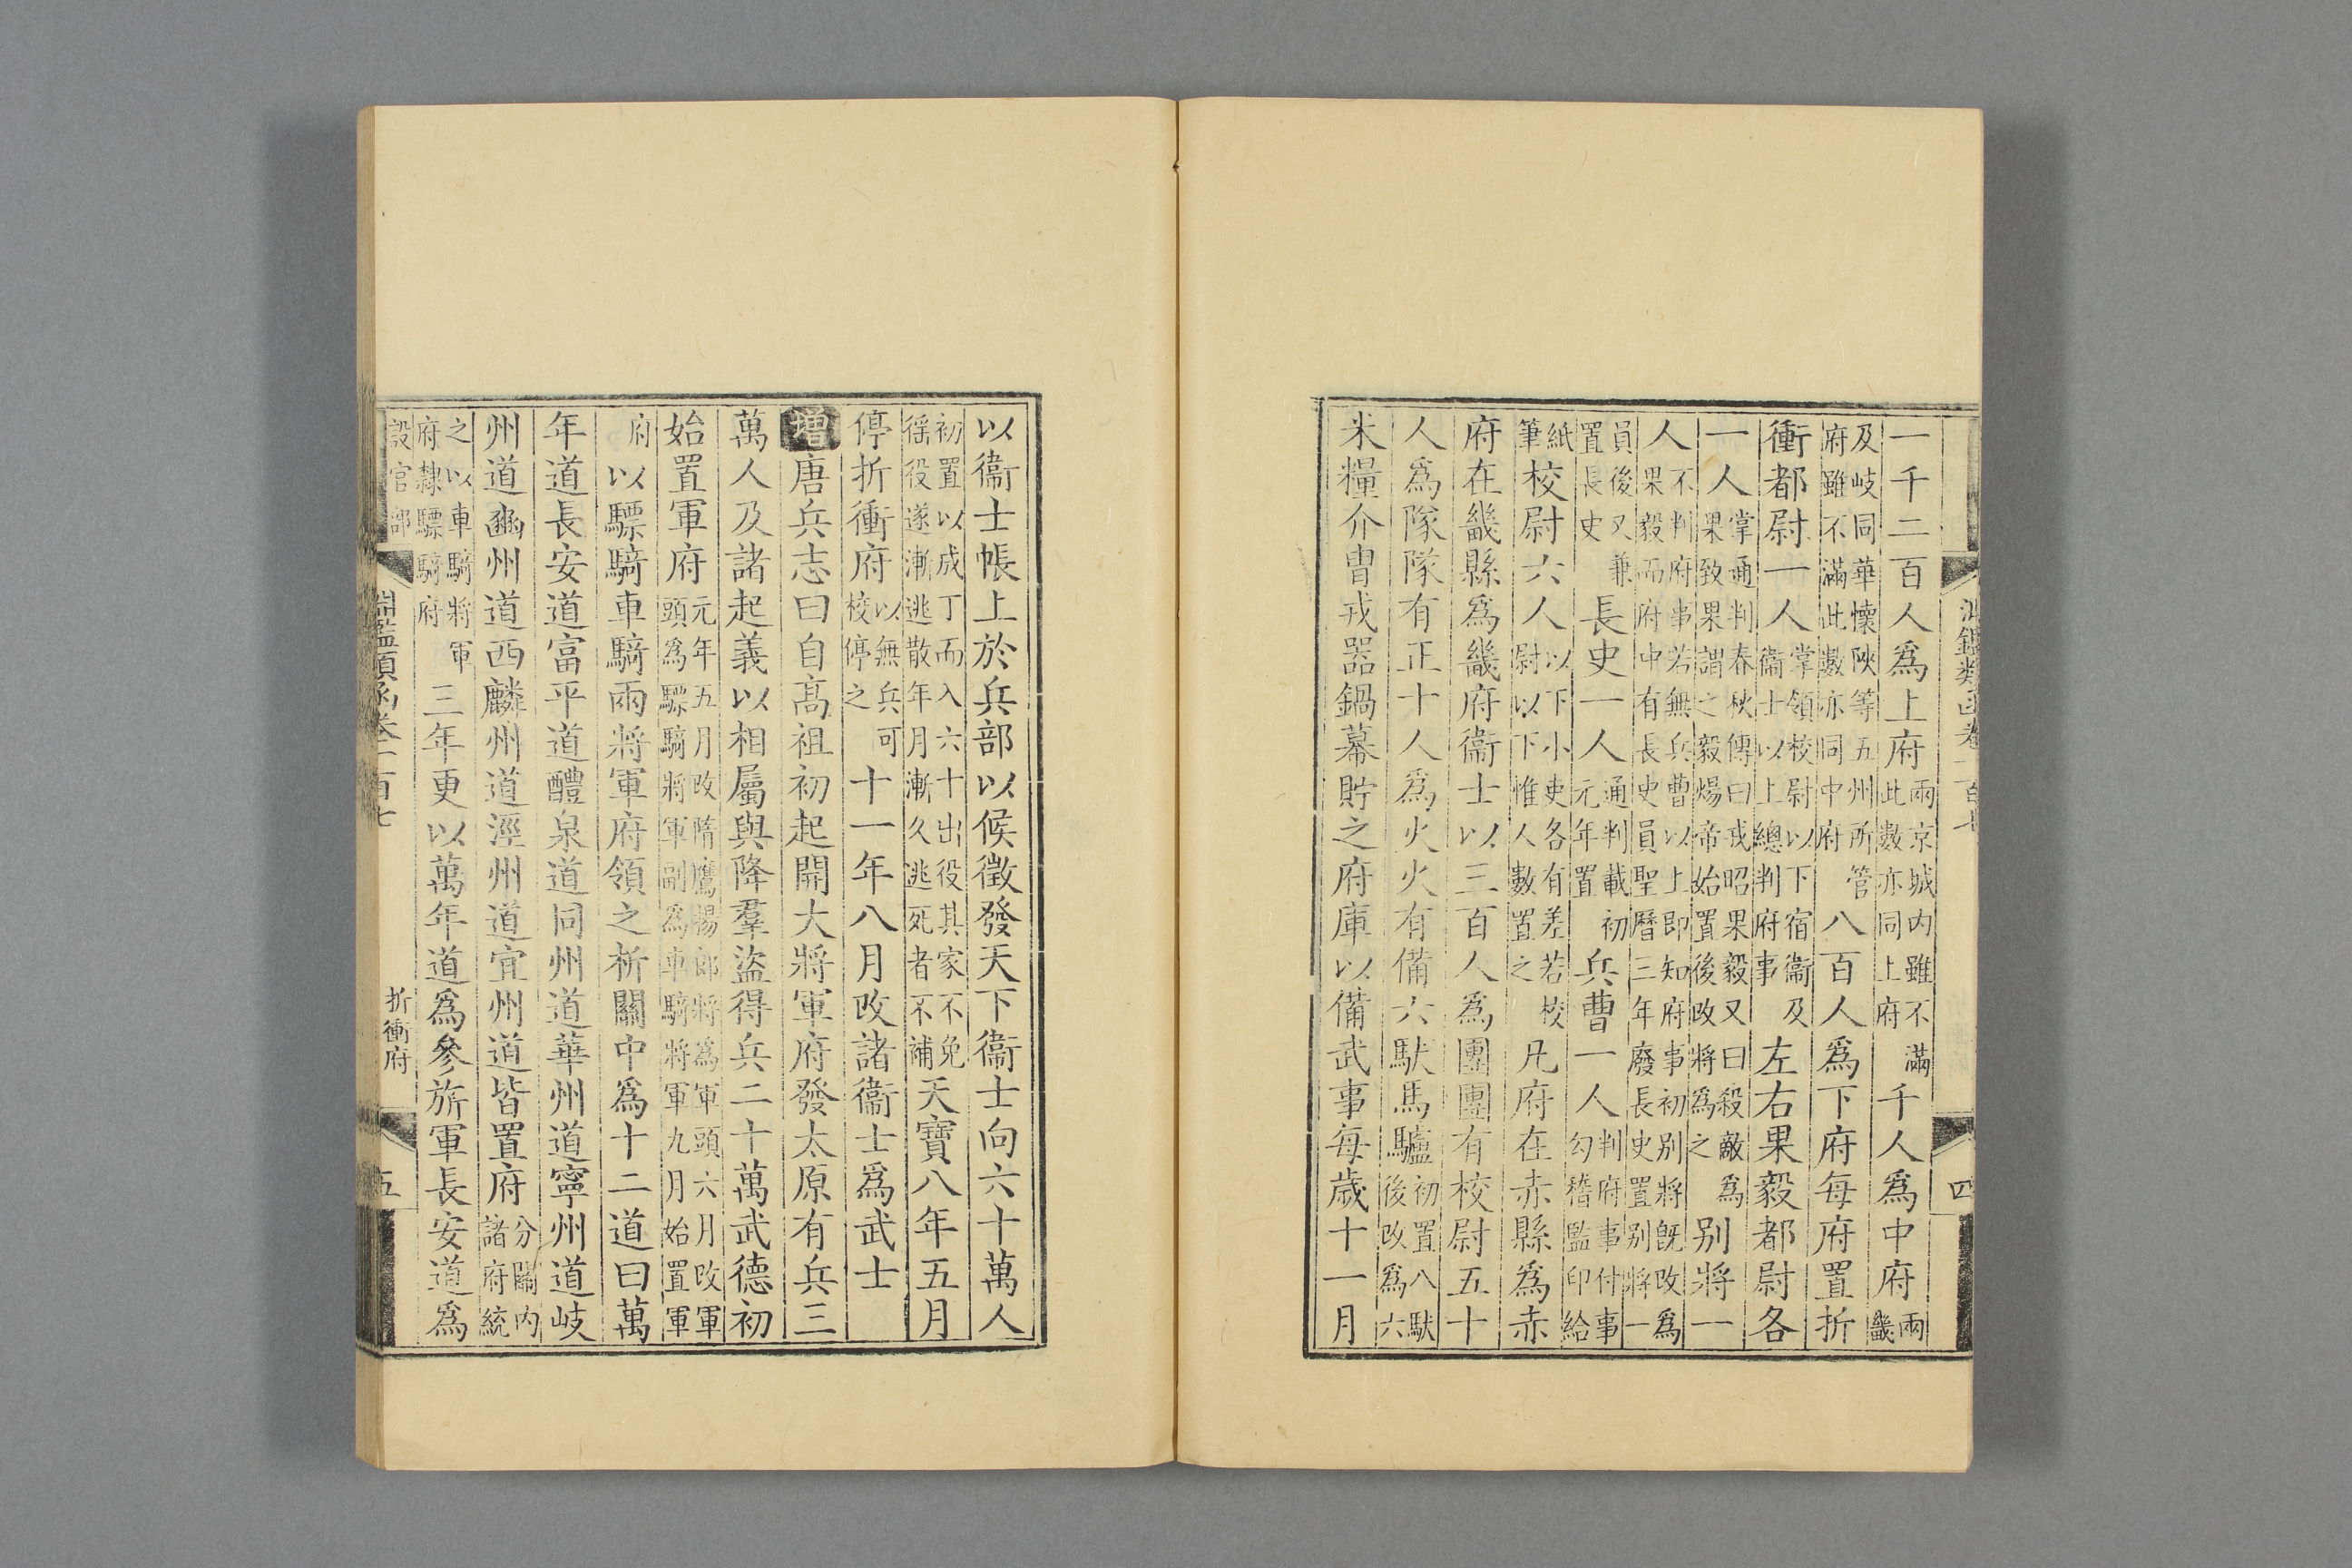 一千二百人爲上府兩京城内雖不滿此數亦同上府千人爲中府兩畿
及岐同華懷陝等五州所管府雖不滿此數亦同中府八百人爲下府每府置折
衝都尉一人掌領校尉以下宿衞及衞士以上總判府事左右果毅都尉各
一人掌通判春秋傳曰戎昭果毅又曰殺敵爲果致果謂之毅煬帝始置後改將爲之别將一
人不判府事若無兵曹以上即知府事初别將既改爲果毅而府中有長史員聖曆三年廢長史置别將一
員後又兼置長史長史一人通判載初元年置兵曹一人判府事付事勾稽監印給
紙筆校尉六人以下小吏各有差若校尉以下惟人數置之凡府在赤縣爲赤
府在畿縣爲畿府衞士以三百人爲團團有校尉五十
人爲隊隊有正十人爲火火有備六馱馬驢初置八馱後改爲六
米糧介冑戎器鍋幕貯之府庫以備武事每歲十一月
淵鑑類函卷一百七 四
以衞士帳上於兵部以候徵發天下衞士向六十萬人
初置以成丁而入六十出役其家不免徭役遂漸逃散年月漸久逃死者不補天寶八年五月
停折衝府以無兵可校停之十一年八月改諸衞士爲武士
增唐兵志曰自高祖初起開大將軍府發太原有兵三
萬人及諸起義以相屬與降羣盜得兵二十萬武德初
始置軍府元年五月改隋鷹揚郎將爲軍頭六月改軍頭爲驃騎將軍副爲車騎將軍九月始置軍
府以驃騎車騎兩將軍府領之析關中爲十二道曰萬
年道長安道富平道醴泉道同州道華州道寧州道岐
州道豳州道西麟州道涇州道宜州道皆置府分關内諸府統
之以車騎將軍府隸驃騎府三年更以萬年道爲參旂軍長安道爲
設官部 淵鑑類函卷一百七 折衝府 五